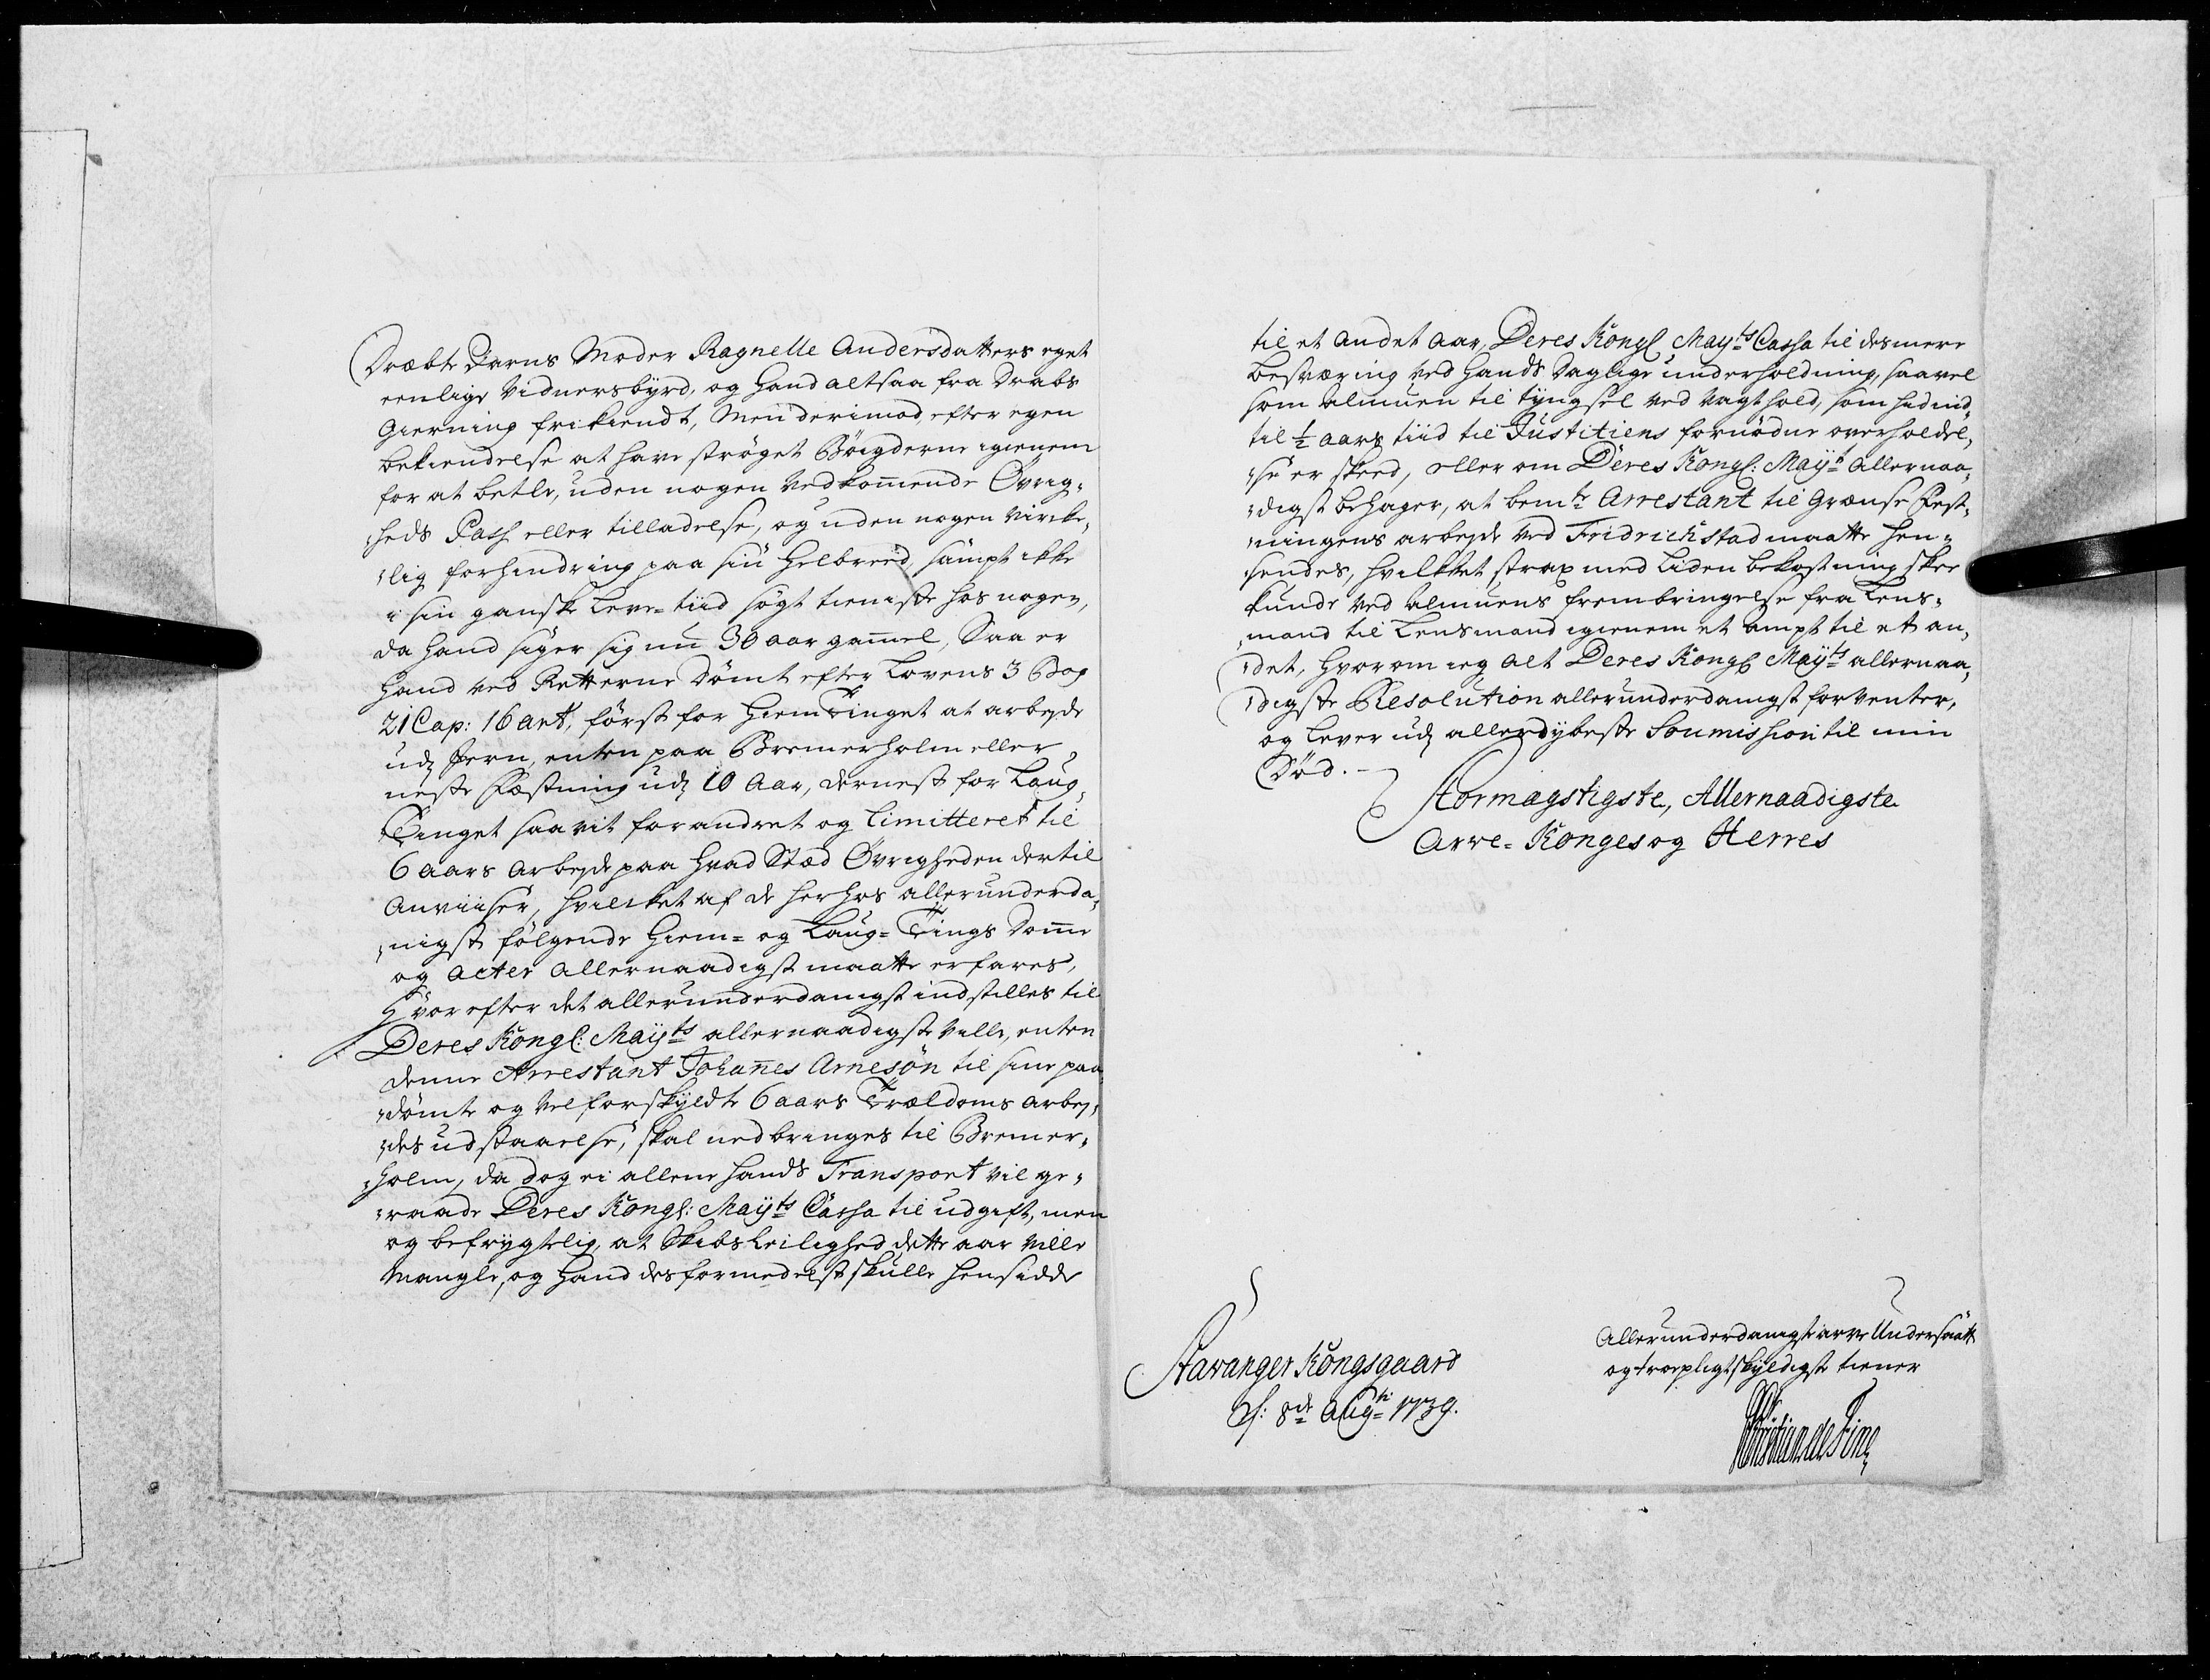 Dræbte Barns Moder Ragnelle Andersdatters eget
eenlige Vidnersbyrd, og hand altsaa fra Drabs
Gierning frikiendt, Men derimod, efter egen
bekiendelse at have strøget Bøigderne igienem
for at betle, uden nogen vedkomende Øvrig-
heds Pass eller tilladelse, og uden nogen virke-
lig forhindring paa sin Helbreed, sampt ikke
i sin ganske Leve-tiid søgt tieniste hos nogen,
da hand siger sig nu 30 aar gamel, Saa er
hand ved Retterne Dømt efter Lovens 3 Bog
21 Cap: 16 art, først for Hiemtinget at arbejde
udj Jern, enten paa Bremerholm eller
neste Fæstning udj 10 Aar, dernest for Laug-
Tinget saavit forandret og Limitteret til
6 aars Arbejde paa hvad Stæd Øvrigheden dertil
Anviiser, hvilcket af de herhos allerunderda-
nigst følgende Hiem- og Laug-Tings Dome
og Acter Allernaadigst maatte erfares,
Hvorefter det allerunderdanigst indstilles til
Deres Kongl: Mayts allernaadigste Ville, enten
denne Arrestant Johanes Arnesøn til sine paa-
dømte og velforskyldte 6 aars Trældoms Arbej-
des udstaaelse, skal nedbringes til Bremer-
holm, da dog ei allene hands Transport vil ge-
raade Deres Kongl: Mayts Cassa til udgift, men
og befrygtelig, at Skibs Leilighed dette aar ville
Mangle, og hand desformedelst skulle hensidde
til et andet aar, Deres Kongl Mayts Cassa til desmere
besværing ved hands daglige underholdning, saavel
som almuen til tyngsel ved vagthold, som hid ind-
til ½ aars tiid til Justitiens fornødne overholdel-
se er skeed, eller om Deres Kongl: Mayt Allernaa-
digst behager, at bemte Arrestant til Grænse Fest-
ningens arbejde ved Fridrichstad maatte hen-
sendes, hvilket strax med Liden bekostning skee
kunde ved almuens frembringelse fra Lens-
mand til Lensmand igienem et ampt til et an-
det, hvorom ieg alt Deres Kongl Mayts allernaa-
digste Resolution allerunderdanigst forventer,
og lever udj allerdybeste Soumission til min
Død.
Stormægtigste, Allernaadigste
Arve-Konges og Herres
Stavanger Kongsgaard
d: 8de Augti 1739.
Allerunderdanigste arve Undersaatt
og troepligtskyldigste tiener
Christian de Fine